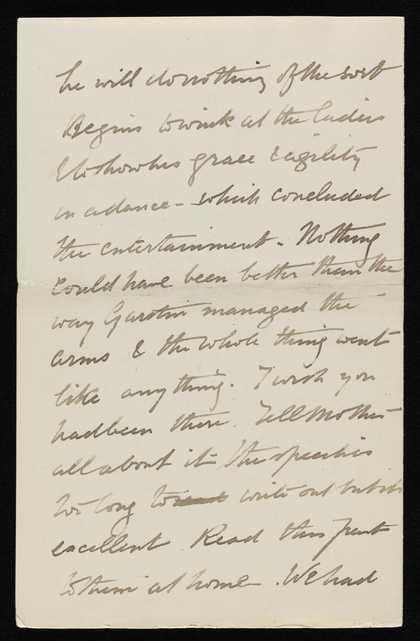 he will do nothing of the sort
Begins to wink at the ladies
& to show his grace & agility
in a dance - which concluded
the entertainment. Nothing
could have been better than the
way managed the
arms & the whole thing went
like any thing. I wish you
had been there. Tell Mother
all about it the speech is
too long to write out but is
excellent. Read this part
to them at home. We had